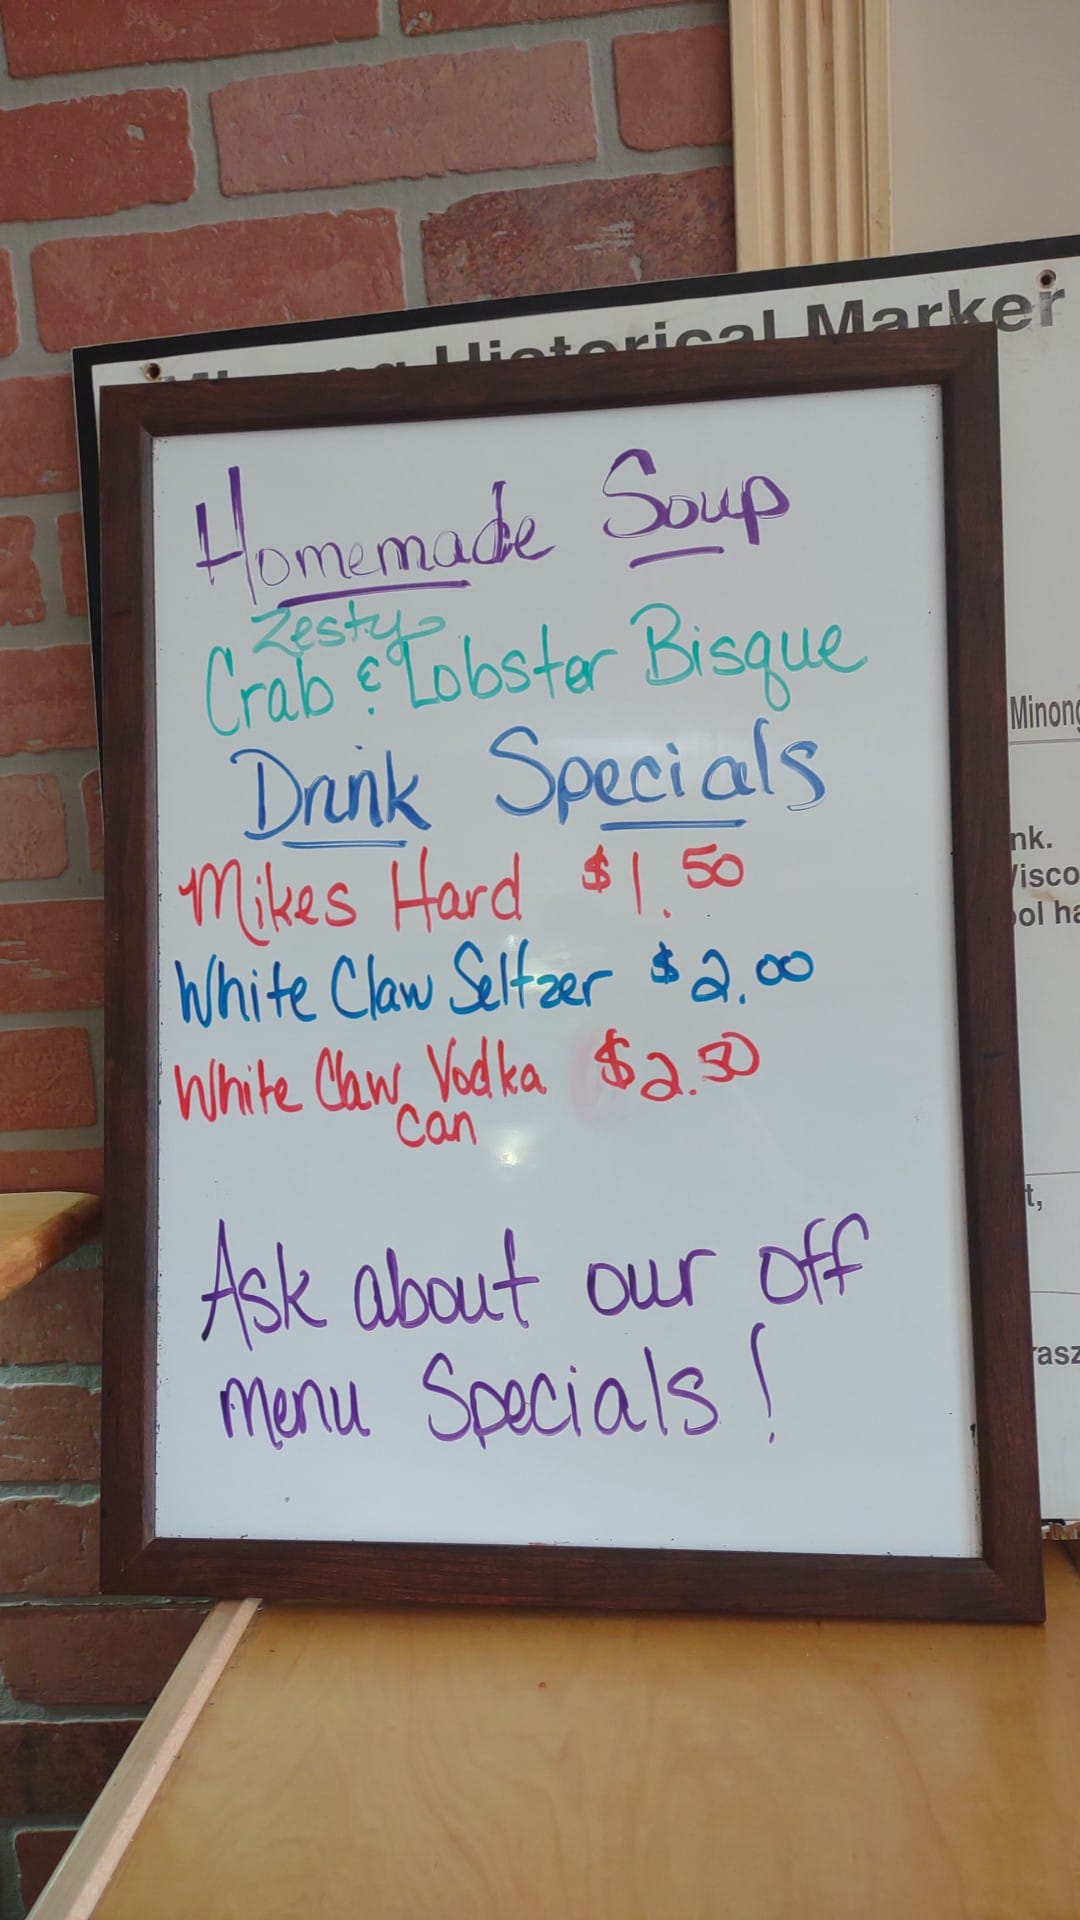 Historical Marker
Homemade Soup
Zesty
Crab & Lobster Bisque
Drink Specials
Mikes Hard $1.50
White Claw Seltzer $2.00
White Claw Vodka $2.50
can
Ask about our off
menu Specials!
Minong
nk.
ol ha
t,